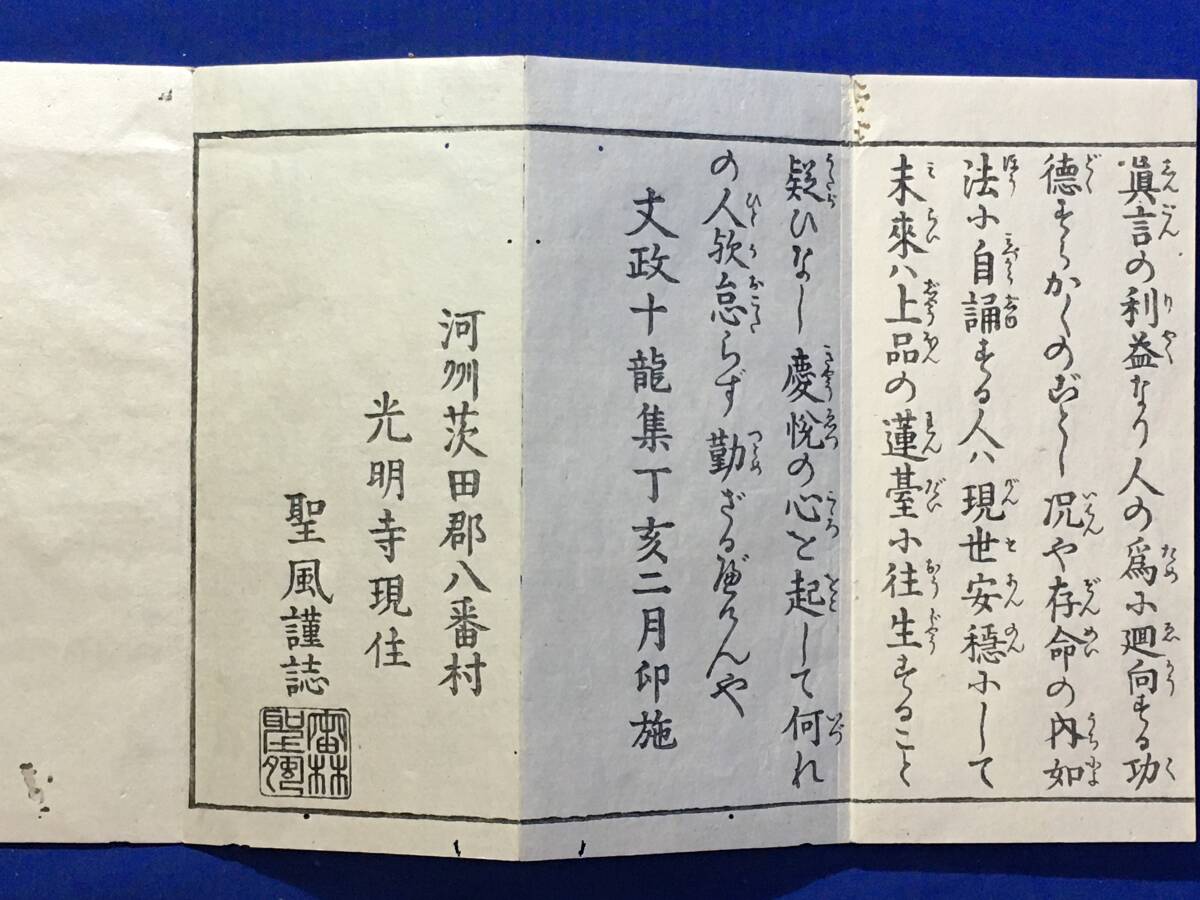 眞言の利益なり人の爲に廻向する功
德すらかくのごとし况や存命の内如
法に自誦する人ハ現世安穩にして
未來ハ上品の蓮臺に往生すること
疑ひなし慶悅の心を起して何れ
の人欤怠らず勤ざるべけんや
文政十龍集丁亥二月印施
河州茨田郡八番村
光明寺現住
聖風謹誌